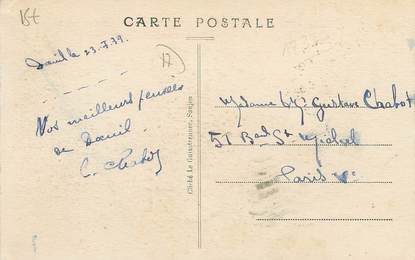 CARTE POSTALE
Dauil le 23.7.39.
Nos meilleurs pensées
de Dauil.
C. Chabot
Cliché Le Gouestronner, Saujon
Madame & Mr Gustave Chabot
51 Bard St Michel
Paris Ve